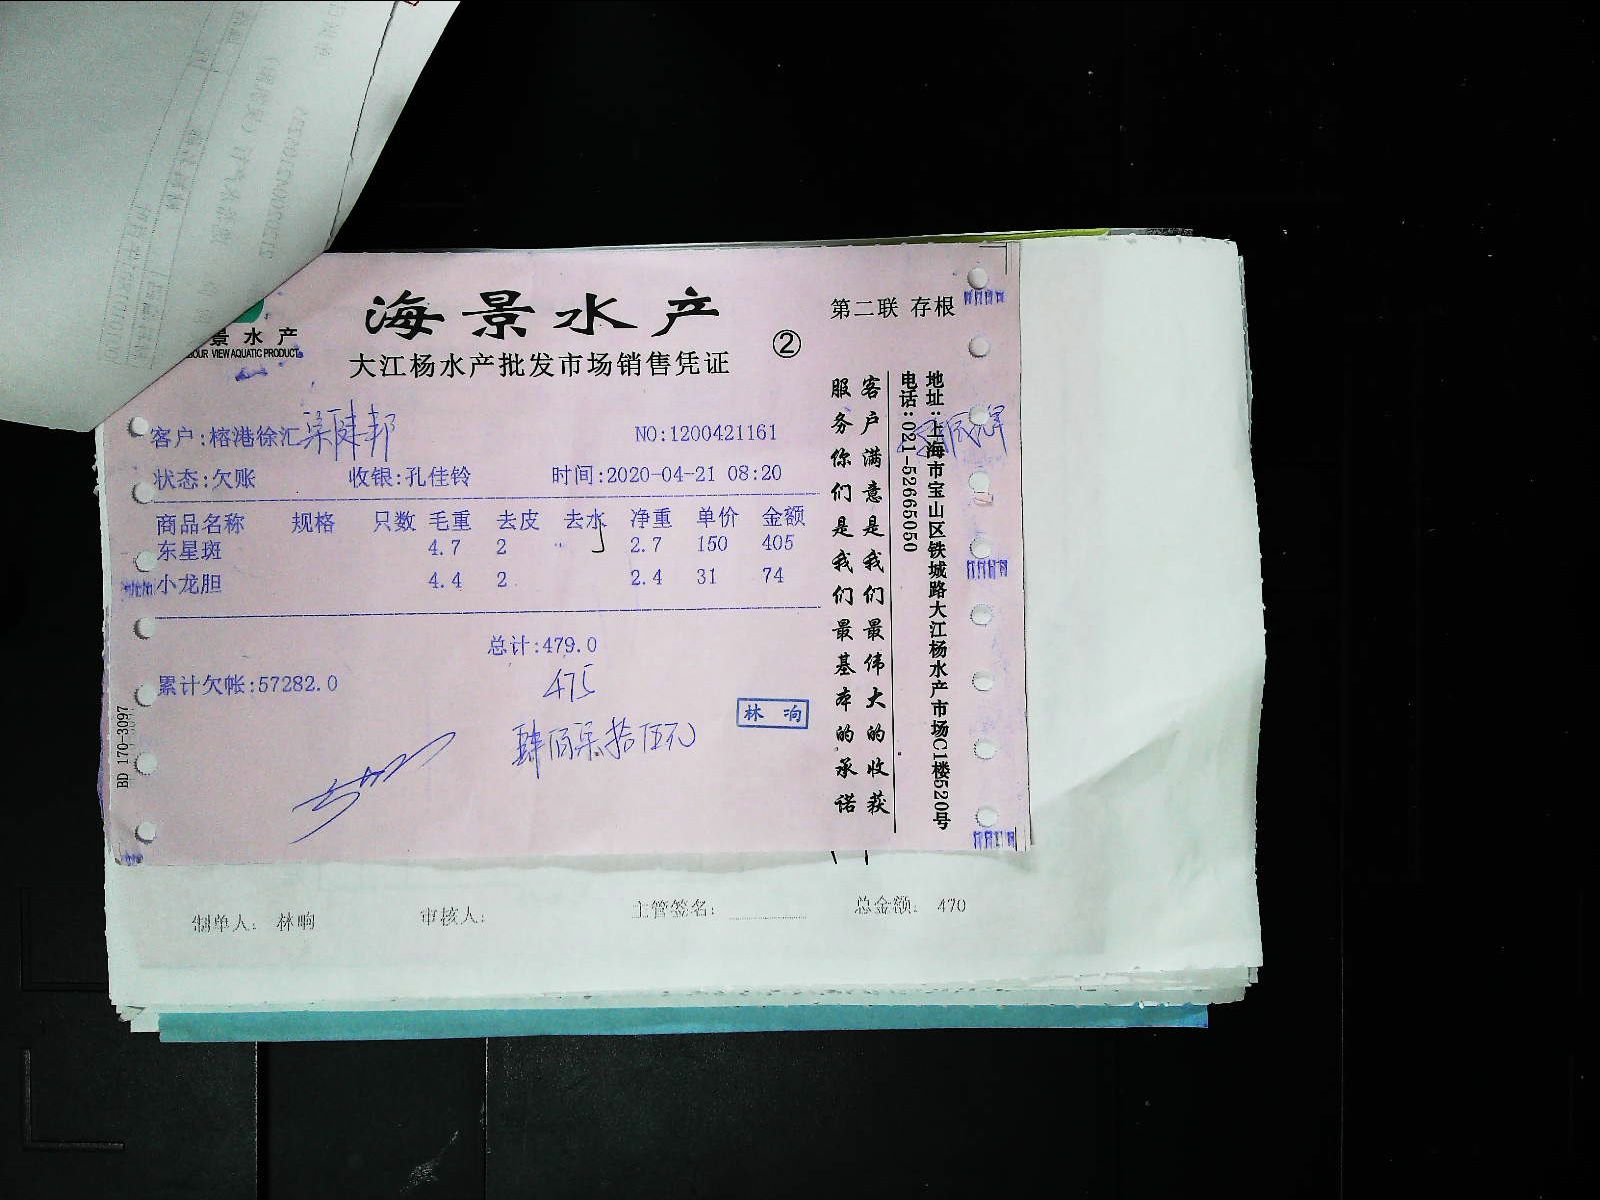 海景水产
大江杨水产批发市场销售凭证
②
第二联 存根
景水产
BOUR VIEW AQUATIC PRODUCT
客户:榕港徐汇 梁健邦
NO:1200421161
状态:欠账 收银:孔佳铃 时间:2020-04-21 08:20
商品名称 规格 只数 毛重 去皮 去水 净重 单价 金额
东星斑 4.7 2 2.7 150 405
小龙胆 4.4 2 2.4 31 74
总计:479.0
475
累计欠帐:57282.0
肆佰柒拾伍元
林响
BD 170-3097
客户满意是我们最伟大的收获
服务你们是我们最基本的承诺
地址:上海市宝山区铁城路大江杨水产市场C1楼520号
电话:021-52665050
制单人: 林响 审核人: 主管签名: 总金额: 470